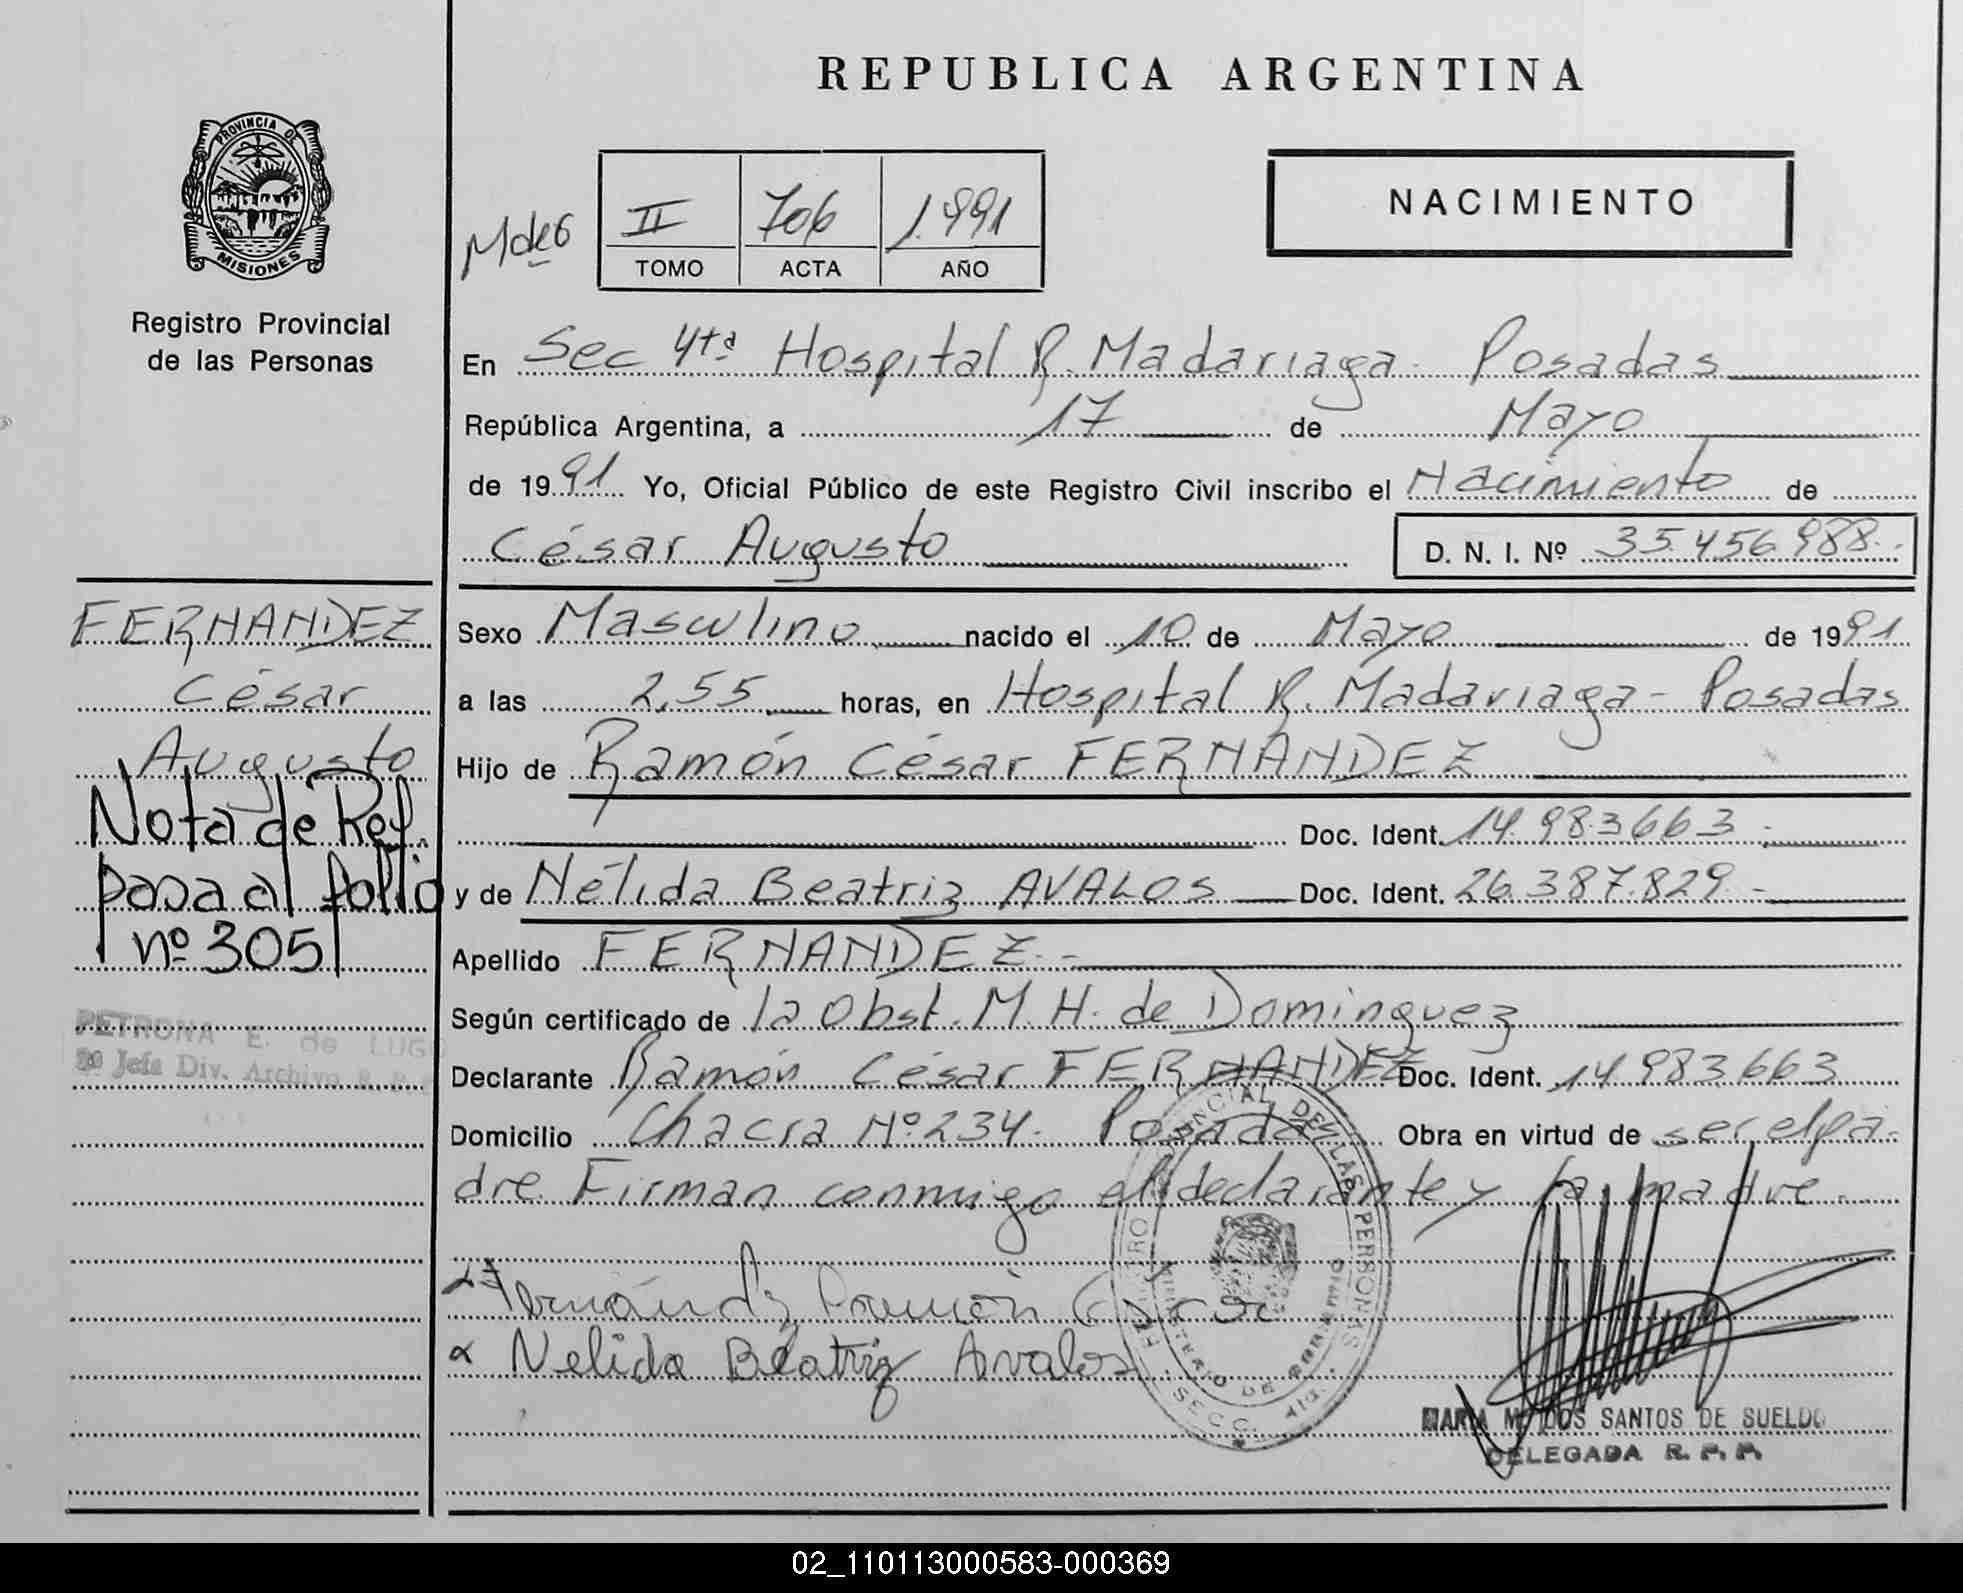 REPUBLICA ARGENTINA
PROVINCIA DE
MISIONES
Registro Provincial
de las Personas
II 706 1.991
TOMO ACTA AÑO
NACIMIENTO
En Sec 4ta Hospital R. Madariaga - Posadas
República Argentina, a 17 de Mayo
de 1991 Yo, Oficial Público de este Registro Civil inscribo el Nacimiento de
César Augusto D. N. I. Nº 35.456.988.
FERNANDEZ
César
Augusto
Nota de Ref.
pasa al folio
nº 305
PETRONA E. de LUGO
Jefa Div. Archivo R. P. P.
Sexo Masculino nacido el 10 de Mayo de 1991
a las 2,55 horas, en Hospital R. Madariaga - Posadas
Hijo de Ramón César FERNÁNDEZ
Doc. Ident. 14.983.663 -
y de Nélida Beatriz AVALOS Doc. Ident. 26.387.829 -
Apellido FERNANDEZ.-
Según certificado de la Obst. M. H. de Dominguez
Declarante Ramón César FERNANDEZ Doc. Ident. 14.983.663
Domicilio Chacra Nº 234. Posadas Obra en virtud de ser el pa-
dre. Firman conmigo el declarante y la madre.
Fernández Ramón Cesar
Nelida Beatriz Avalos
REGISTRO PROVINCIAL DE LAS PERSONAS
MINISTERIO DE GOBIERNO
SECC. 4ta.
MARIA M. DOS SANTOS DE SUELDO
DELEGADA R. P. P.
02_110113000583-000369